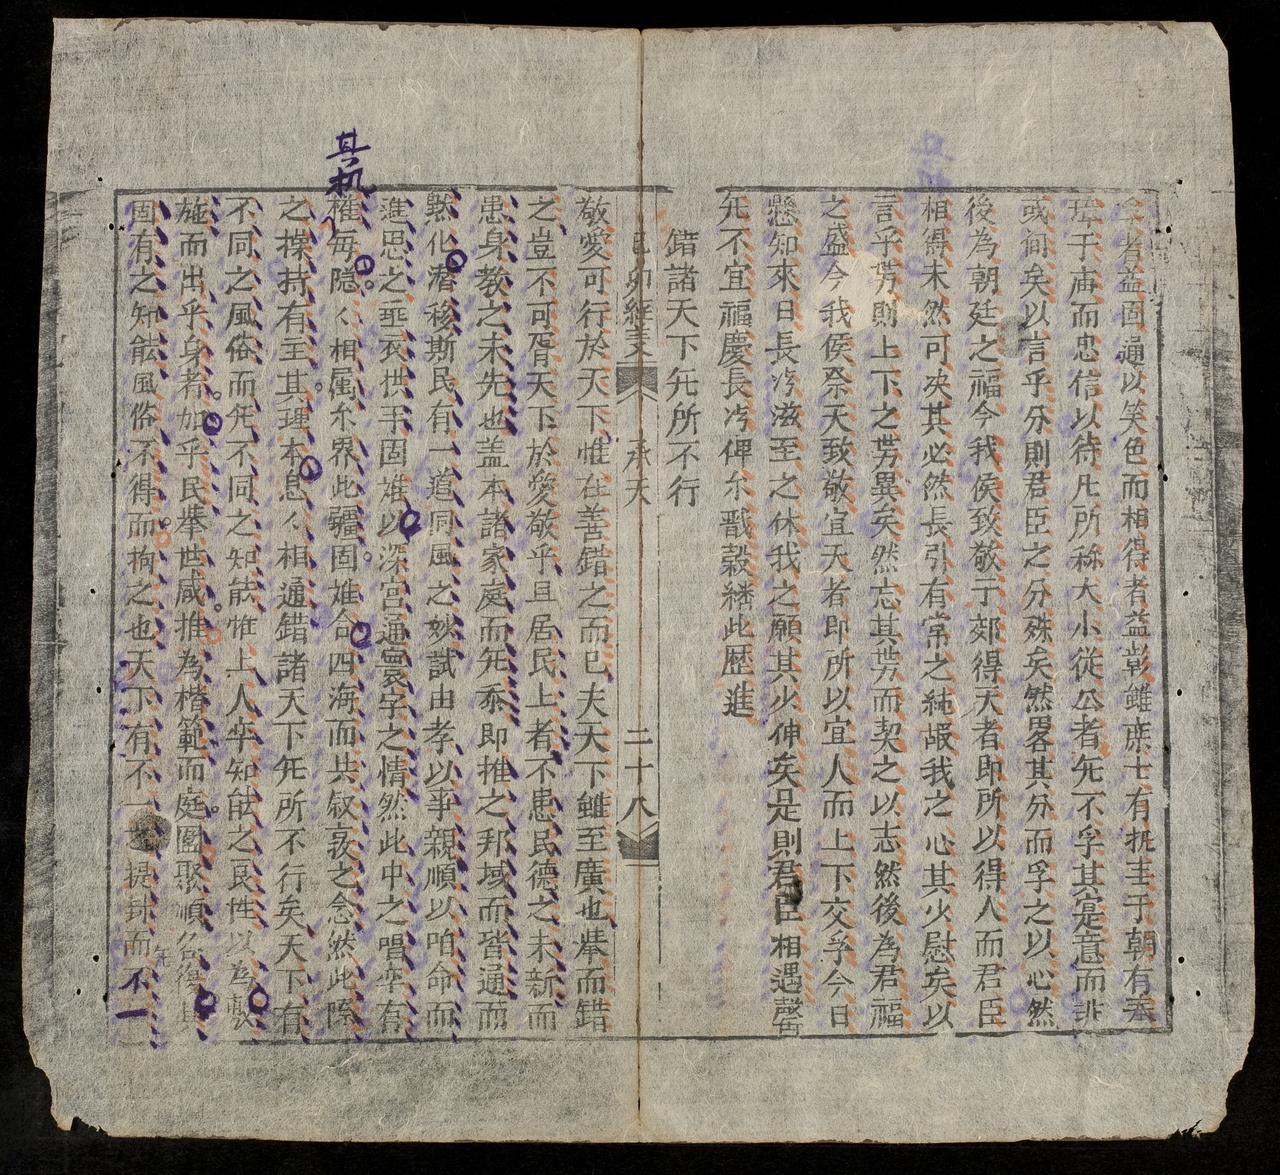 者益固通以笑色而相得者益彰雖庶士有抚圭于朝有奉
璋于庙而忠信以待凡所称大小從公者旡不孚其寔意而非
或间矣以言乎分則君臣之分殊矣然畧其分而孚之以心然
後為朝廷之福今我侯致敬于郊得天者即所以得人而君臣
相得未然可决其必然長引有常之純嘏我之心其少慰矣以
言乎势則上下之势異矣然忘其势而契之以志然後為君福
之盛今我侯祭天致敬宜天者即所以宜人而上下交孚今日
懸知來日長泻滋至之休我之願其少伸矣是則君臣相遇罄
旡不宜福慶長泻俾尔戬穀繙此歷進
錯諸天下旡所不行
己卯經義 承天 二十八
敬愛可行於天下惟在善錯之而已夫天下雖至廣也举而錯
之豈不可胥天下於愛敬乎且居民上者不患民德之未新而
患身教之未先也盖本諸家庭而旡忝即推之邦域而皆通而
默化潜移斯民有一道同風之妙試由孝以事親順以咱命而
進思之垂衣拱手固难以深宫通寰宇之情然此中之唱率有
其机
权每隐々相属尓界此疆固难合四海而共叙彛之念然此際
之操持有至其理本息々相通錯諸天下旡所不行矣天下有
不同之風俗而旡不同之知能惟上人率知能之良性以為
施而出乎身者加乎民举世咸推為楷範而庭闈聚順名復其
固有之知能風俗不得而拘之也天下有不一之提封而不一